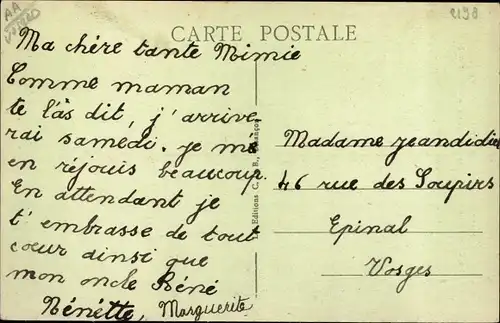 CARTE POSTALE
Ma chère tante Mimie
Comme maman
te l'as dit, j'arrive
rai samedi. je me
en réjouis beaucoup.
En attendant je
t'embrasse de tout
cœur ainsi que
mon oncle Réné
Nénette, Marguerite
Les Editions C. B., Besançon
Madame Jeandidier
46 rue des Soupirs
Epinal
Vosges